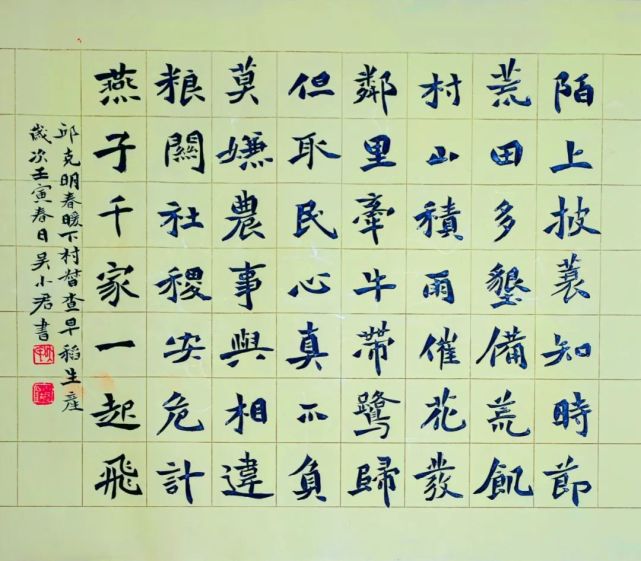 陌上披蓑知時節
荒田多墾備荒飢
村山積雨催花發
鄰里牽牛帶鷺歸
但取民心真不負
莫嫌農事與相違
粮關社稷安危計
燕子千家一起飛
邱克明春暖下村督查早稻生產
歲次壬寅春日吴小君書